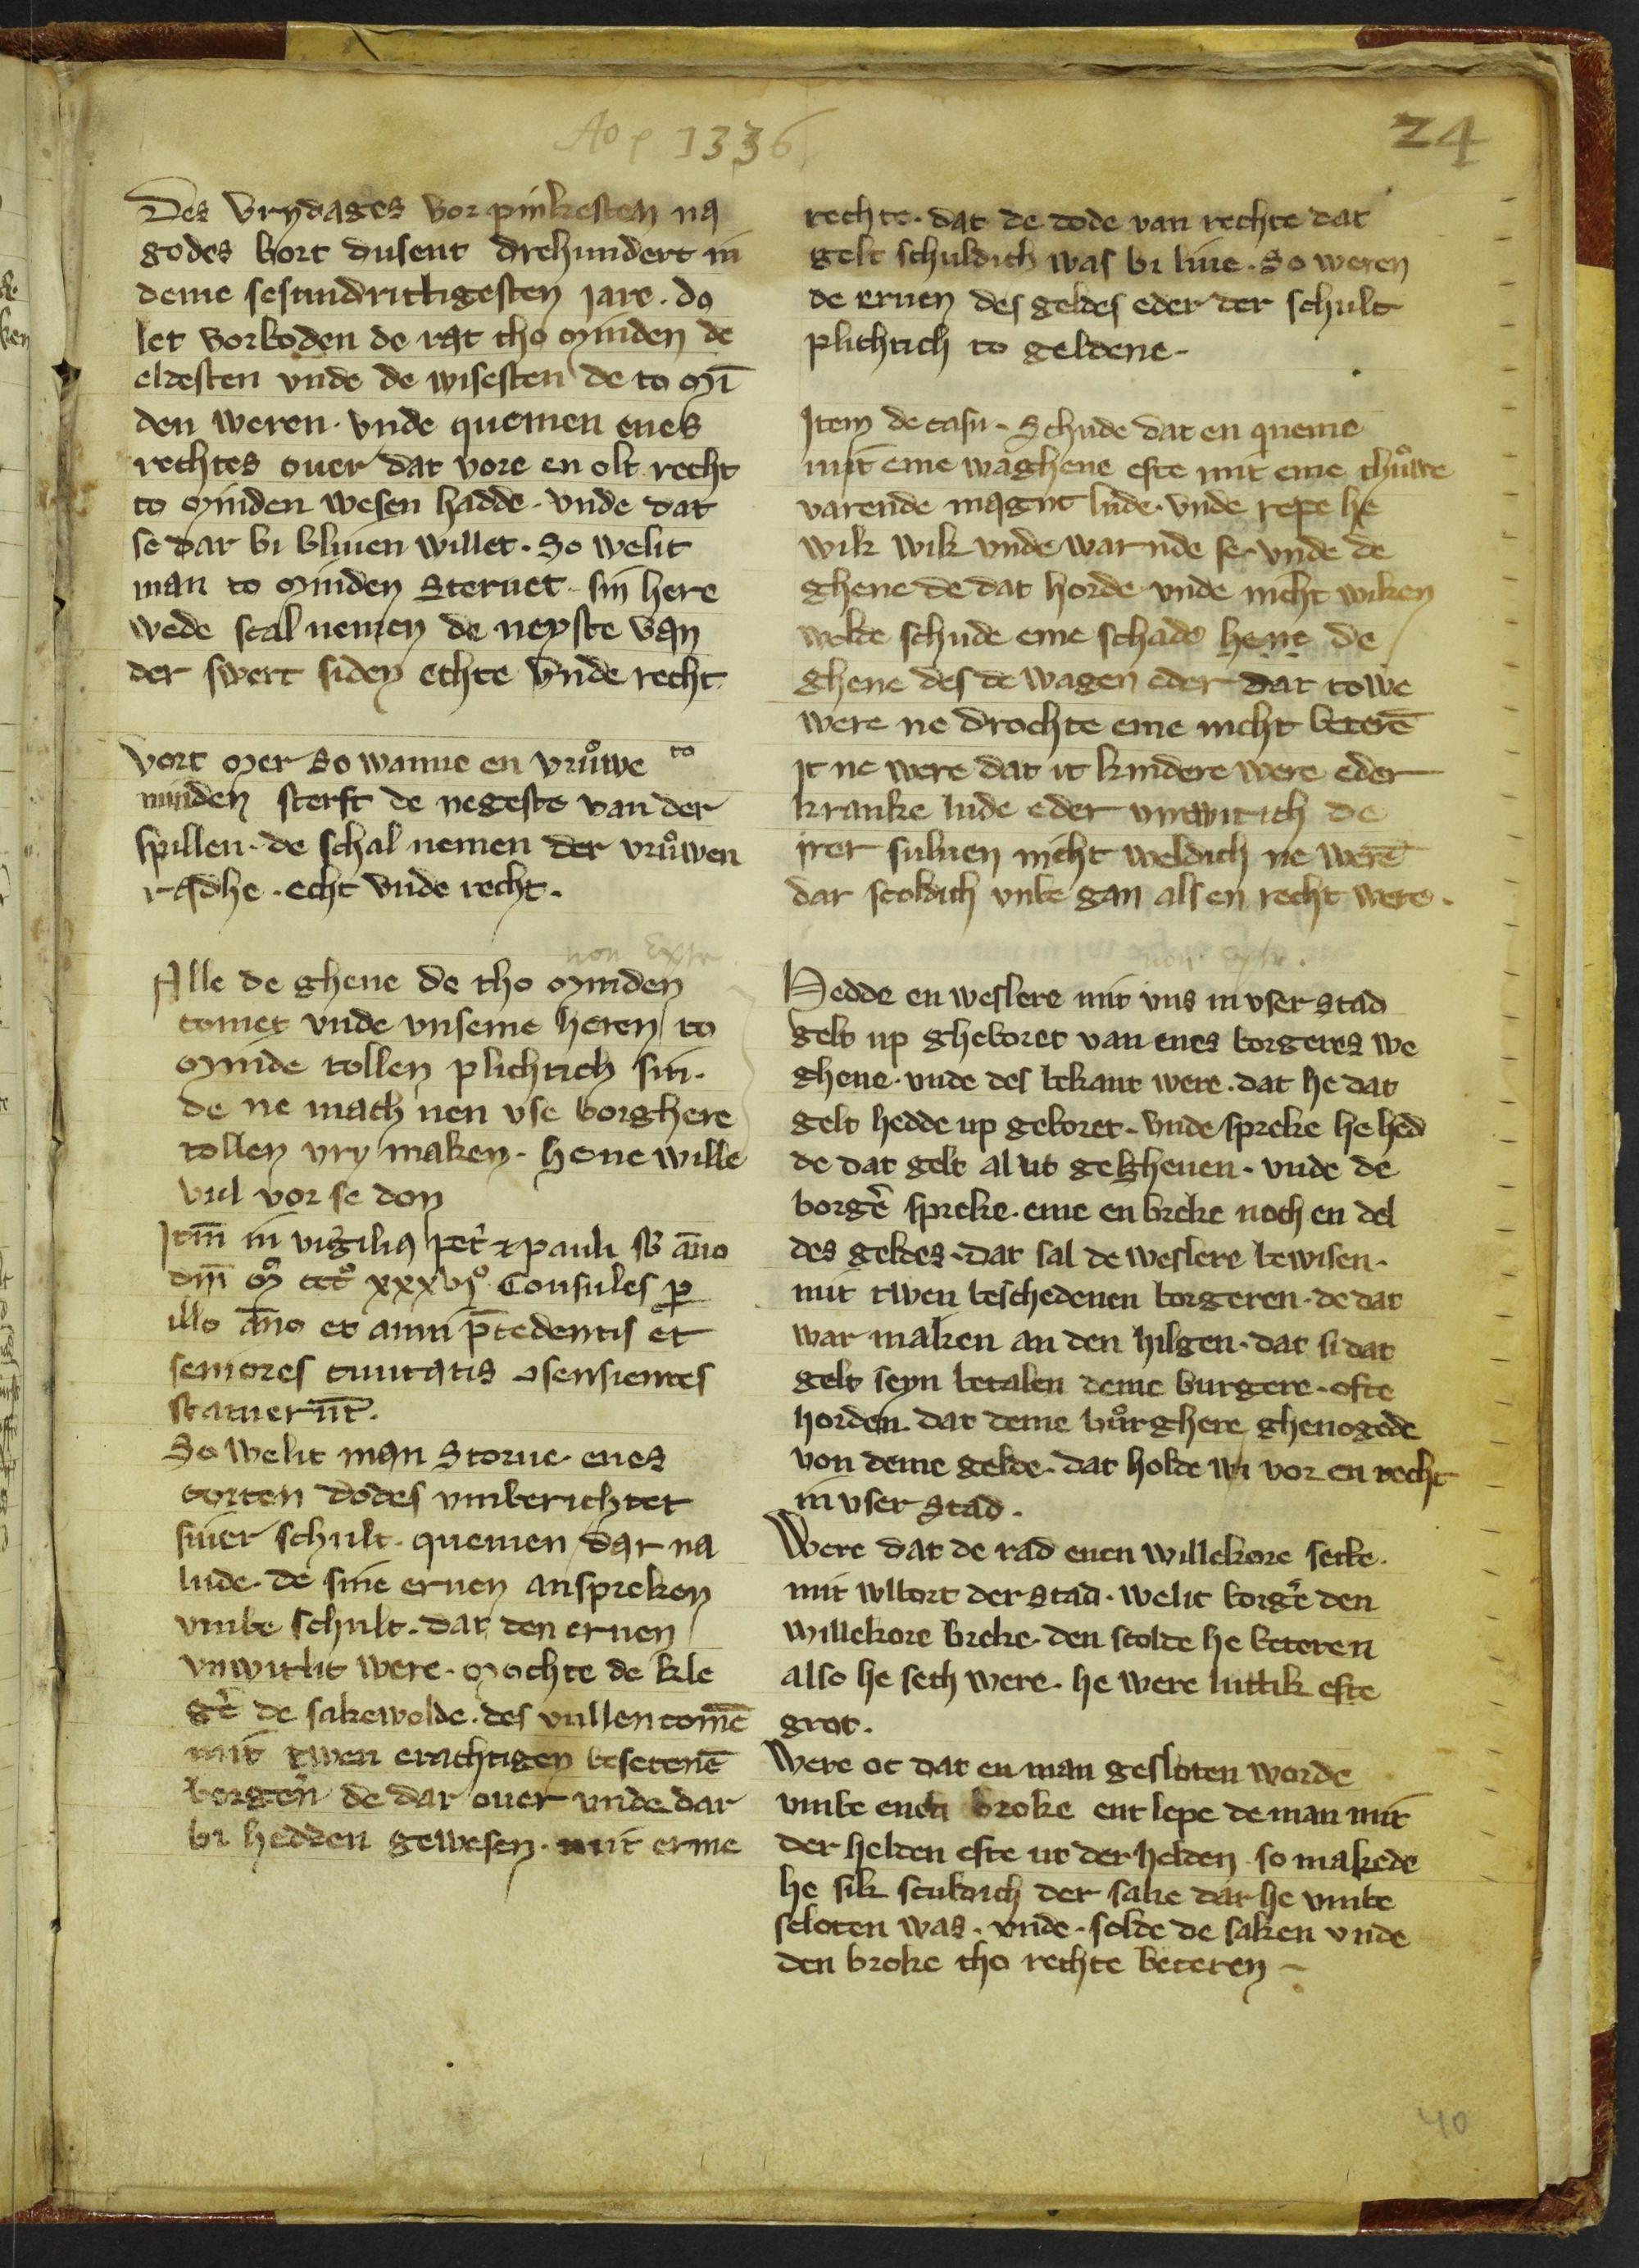 Ao 1336
24
Des vrydages vor pinkesten na
godes bort dusent drehundert in
deme sesundrittigesten jare. do
let vorboden de rat tho minden de
eldesten vnde de wisesten de to mī
den weren. vnde quemen enes
rechtes ouer dat vore en olt recht
to minden wesen hadde. vnde dat
se dar bi bliuen willet. So welit
man to minden steruet. sin here
wede scal nemen de neyste van
der swert siden echte vnde recht
Vort mer so wanne en vrůwe to
minden sterft de negeste van der
spillen. de schal nemen der vrůwen
radhe. echt vnde recht.
non Extr
Alle de ghene de tho minden
comet vnde vnseme heren to
minde tollen plichtich sin.
de ne mach nen vse borghere
tollen vry maken. hene wille
vul vor se don
Itm̄ in vigilia petr̄ & pauli sb āno
dm̄ mo ccco xxxvjo. Consules p̱
illo āno et anni p̄cedentis et
seniores ciuitatis ɔsensientes
statuerūt.
So welit man storue. enes
corten dodes vmberichtet
siner schult. quemen dar na
lude. de sine eruen anspreken
vmbe schult. dat den eruen
vnwitlit were. mochte de kle
gē de sakewolde. des vullencomē
mit twen erachtigen besetenē
borgern̄ de dar ouer vnde dar
bi hedden gewesen. mit erme
rechte. dat de dode van rechte dat
gelt schuldich was bi liue. So weren
de eruen des geldes eder der schult
plichtich to geldene.
Item de casu. Schude dat en queme
mit eme waghene efte mit eme thůwe
varende mqgnt lude. vnde repe he
wik wik vnde warnde se. vnde de
ghene de dat horde vnde nicht wiken
wolde schude eme schade hene de
ghene des de wagen eder dat towe
were ne drochte eme nicht beterē
it ne were dat it kindere were eder
kranke lude eder vnwitich de
irer suluen nicht weldich ne werē
dar scoldich vmbe gan als en recht were.
non extr.
Hedde en weslere mit vns in vser stad
gelt up gheboret van enes borgeres we
ghene. vnde des bekant were. dat he dat
gelt hedde up geboret. vnde spreke he hed
de dat gelt al ut gegheuen. vnde de
borgē spreke. eme en breke noch en del
des geldes. dat sal de weslere bewisen.
mit twen beschedenen borgeren. de dat
war maken an den hilgen. dat si dat
gelt seyn betalen deme burgere. ofte
horden. dat deme bůrghere ghenogede
von deme gelde. dat holde wi vor en recht
in vser stad.
Were dat de rad enen willekore sette.
mit wlbort der stad. welit borgē den
willekore breke. den scolde he beteren
also he seth were. he were luttik efte
grot.
Were oc dat en man gesloten worde
vmbe enen broke ent lepe de man mit
der helden efte ut der helden so makede
he sik sculdich der sake dar he vmbe
sloten was. vnde. solde de saken vnde
den broke tho rechte beteren
40